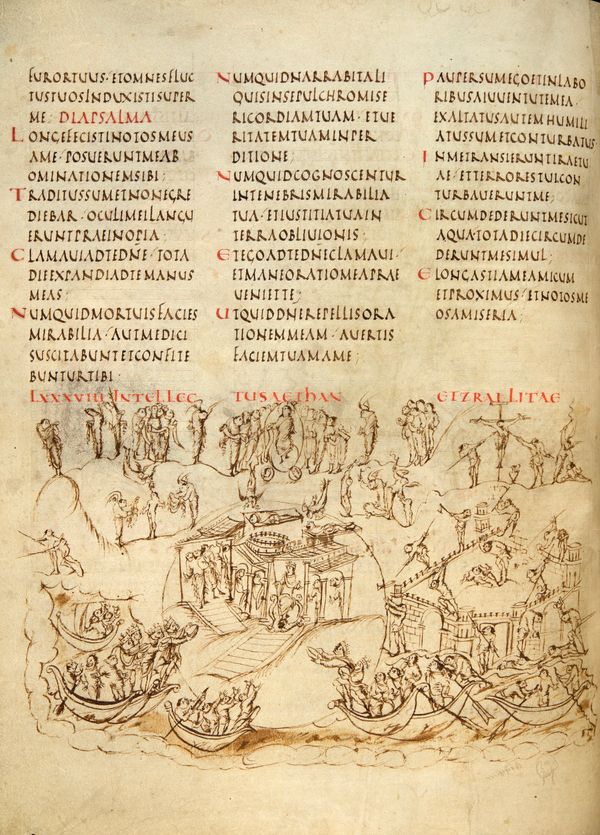 FURORTUUS · ETOMNESFLUC
TUSTUOSINDUXISTISUPER
ME; DIAPSALMA
LONGEFECISTINOTOSMEUS
AME · POSUERUNTMEAB
OMINATIONEMSIBI;
TRADITUSSUMETNONEGRE
DIEBAR · OCULIMEILANGU
ERUNTPRAEINOPIA;
CLAMAUIADTEDNE · TOTA
DIEEXPANDIADTEMANUS
MEAS;
NUMQUIDMORTUISFACIES
MIRABILIA · AUTMEDICI
SUSCITABUNTETCONFITE
BUNTURTIBI·
NUMQUIDNARRABITALI
QUISINSEPULCHROMISE
RICORDIAMTUAM · ETUE
RITATEMTUAMINPER
DITIONE;
NUMQUIDCOGNOSCENTUR
INTENEBRISMIRABILIA
TUA · ETIUSTITIATUAIN
TERRAOBLIUIONIS;
ETEGOADTEDNECLAMAUI ·
ETMANEORATIOMEAPRAE
UENIETTE;
UTQUIDDNEREPELLISORA
TIONEMMEAM · AUERTIS
FACIEMTUAMAME;
PAUPERSUMEGOETINLABO
RIBUSAIUUENTUTEMEA ·
EXALTATUSAUTEMHUMILI
ATUSSUMETCONTURBATUS
INMETRANSIERUNTIRAETU
AE · ETTERRORESTUICON
TURBAUERUNTME;
CIRCUMDEDERUNTMESICUT
AQUATOTADIECIRCUMDE
DERUNTMESIMUL;
ELONGASTIAMEAMICUM
ETPROXIMUS · ETNOTOSME
OSAMISERIA;
LXXXVIII INTELLEC TUSAETHAN EIZRALLITAE